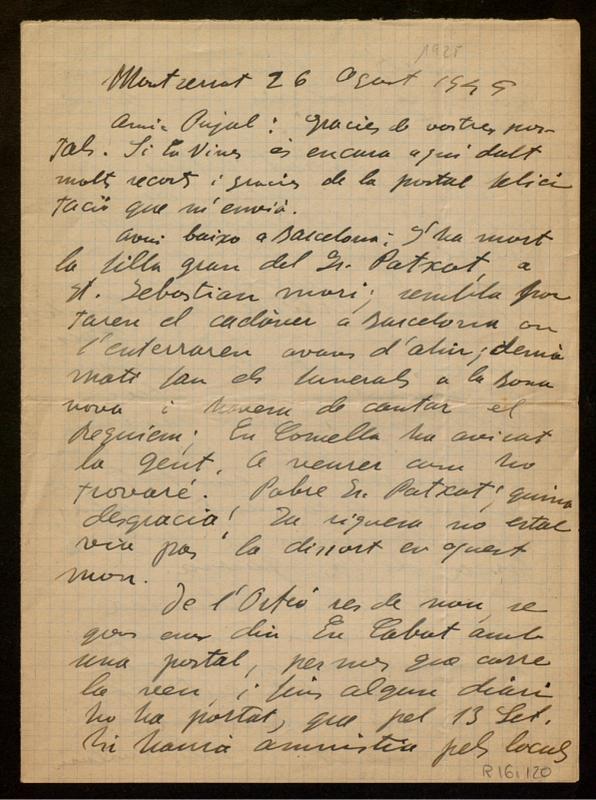 1925
Montserrat 26 Agost 1925
Amic Pujol: Gracies de vostres pos-
tals. Si la Vives es encara aqui dalt
molts recorts i gracies de la postal felici
tació que m'envià.
Avui baixo a Barcelona; S'ha mort
la filla gran del Sr. Patxot, a
St. Sebastian mori; sembla por
taren el cadàver a Barcelona on
l'enterraren avans d'ahir; demà
mati fan els funerals a la Bona
nova i haurem de cantar el
Requiem; En Comella ha avisat
la gent. A veurer com ho
trovaré. Pobre Sr. Patxot; quina
desgracia! La riquesa no estal
via pas la dissort en aquest
mon.
De l'Orfeó res de nou, se
gons em diu En Cabot amb
una postal, per mes que corre
la veu, i fins algun diari
ho ha portat, que pel 13 Set.
hi hauria amnistia pels locals
R161120